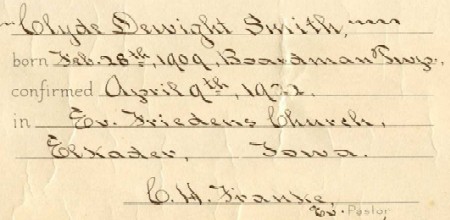 Clyde Dewight Smith,
born Feb. 28th, 1909, Boardman Twp.,
confirmed April 9th, 1922.
in Ev. Friedens Church,
Elkader, Iowa.
C. H. Franke,
Ev. Pastor